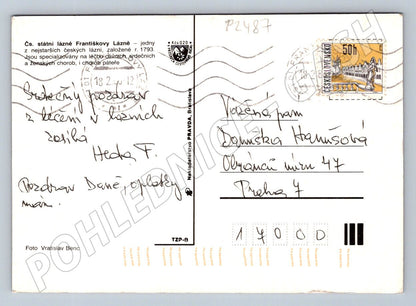 P2487
Čs. státní lázně Františkovy Lázně – jedny
z nejstarších českých lázní, založené r. 1793.
Jsou specializovány na léčbu cévních, srdečních
a ženských chorob, i chorob páteře
Kčs 0,20
50h
ČESKOSLOVENSKO
Srdečný pozdrav
z léčení v lázních
zasílá
Heda F.
Pozdrav Daně, oplatky
mám.
Vážená paní
Hanušová
Obránců míru 47
Praha 7
17000
Nakladatelstvo PRAVDA, Bratislava
Foto Vratislav Benc
TZP-B
POHLEDNICE